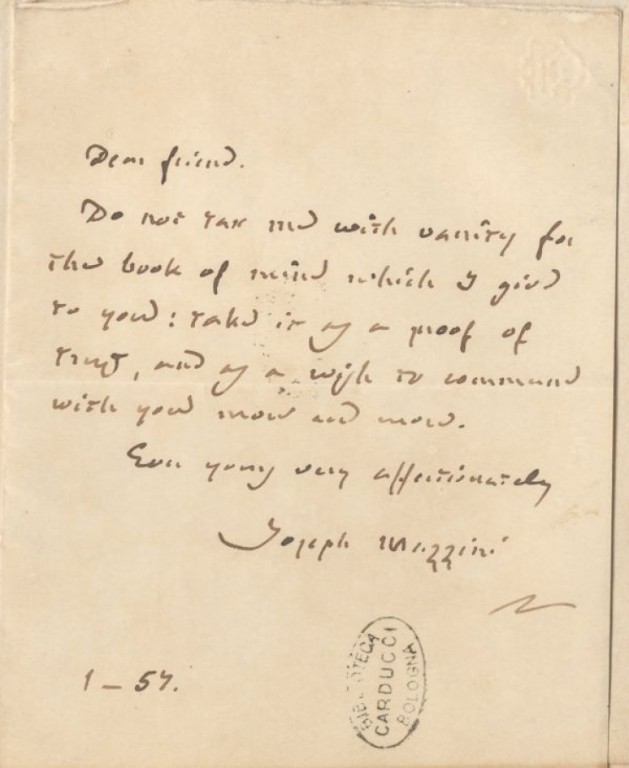 Dear friend.
Do not tax me with vanity for
the book of mine which I give
to you: take it as a proof of
trust, and as a wish to commune
with you more and more.
Ever yours very affectionately
Joseph Mazzini
1 – 57.
BIBLIOTECA
CARDUCCI
BOLOGNA